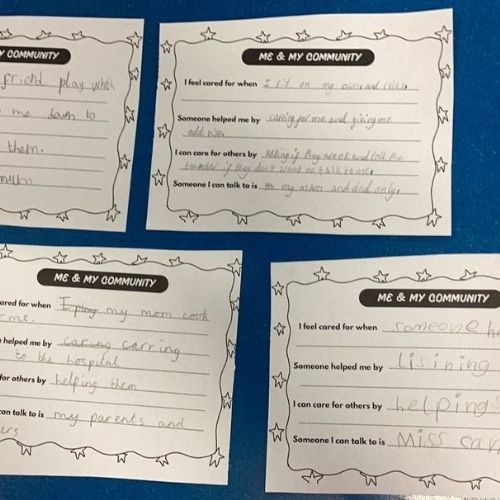 Y COMMUNITY
friend play with
me down to
them.
mum
ME & MY COMMUNITY
I feel cared for when I sit on my own and
Someone helped me by carring for me and giving me
add
I can care for others by Asking if they are ok and tell the
teacher if they don't want to talk to me.
Someone I can talk to is my mam and dad only.
ME & MY COMMUNITY
cared for when I play my mom cook
r me.
e helped me by caring carring
to the hospital
for others by helping them
can talk to is my parents and
ers
ME & MY COMMUNITY
I feel cared for when someone he
Someone helped me by lisining
I can care for others by helpings
Someone I can talk to is Miss car